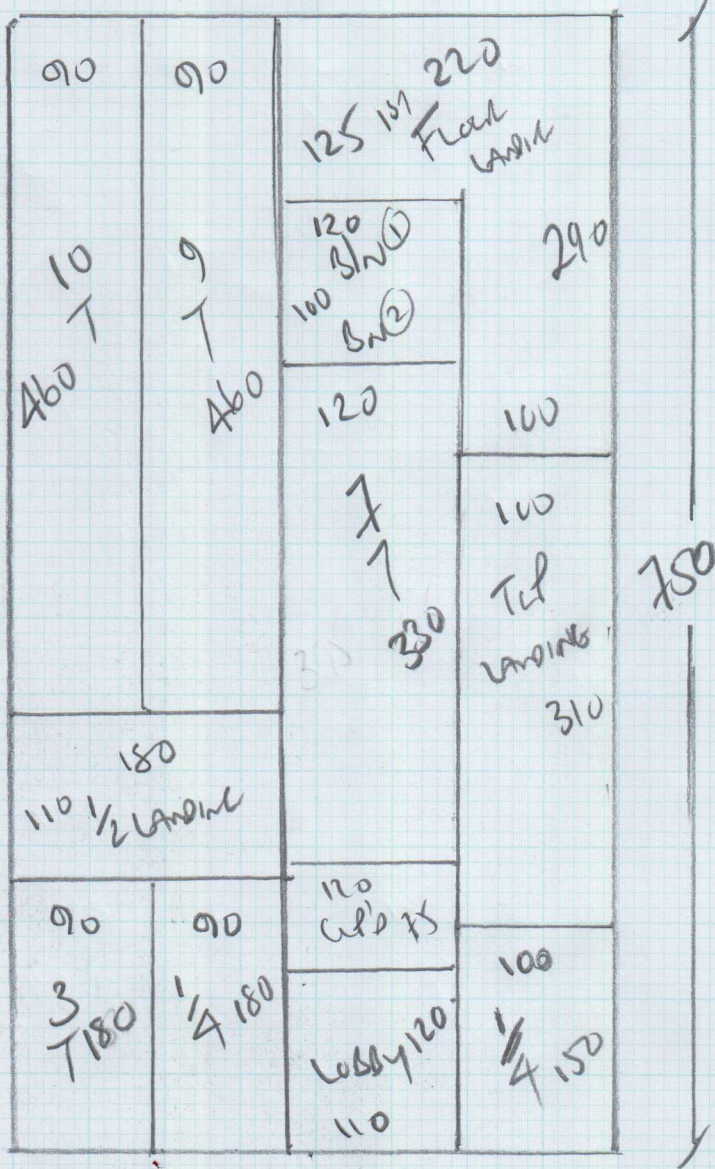 90
90
220
125 1st Floor
Landing
10
T
460
9
T
460
120
Bin 1
100
Bin 2
290
120
7
T
330
100
100
Top
Landing
310
750
180
110 1/2 Landing
90
3
T 180
90
1/4 180
120
Cup'd 75
Lobby 120
110
100
1/4 150